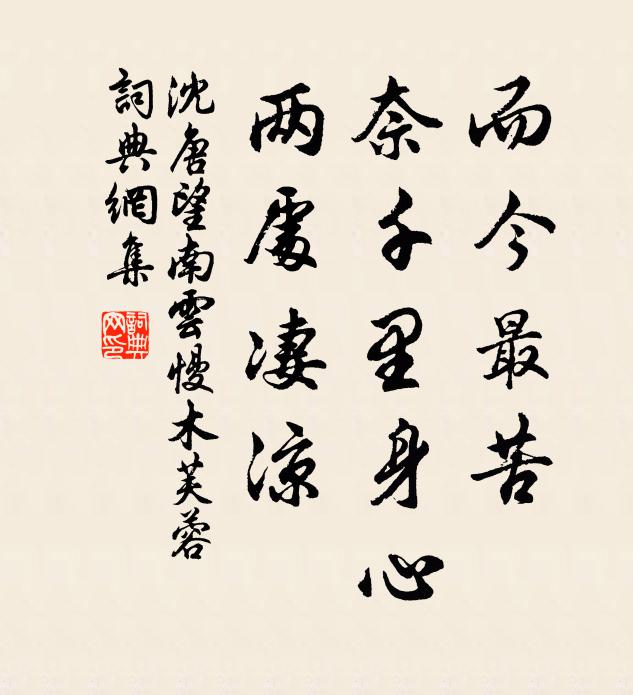 而今最苦
奈千里身心
两處凄涼
沈唐望南雲慢木芙蓉
詞典網集
詞典
网印